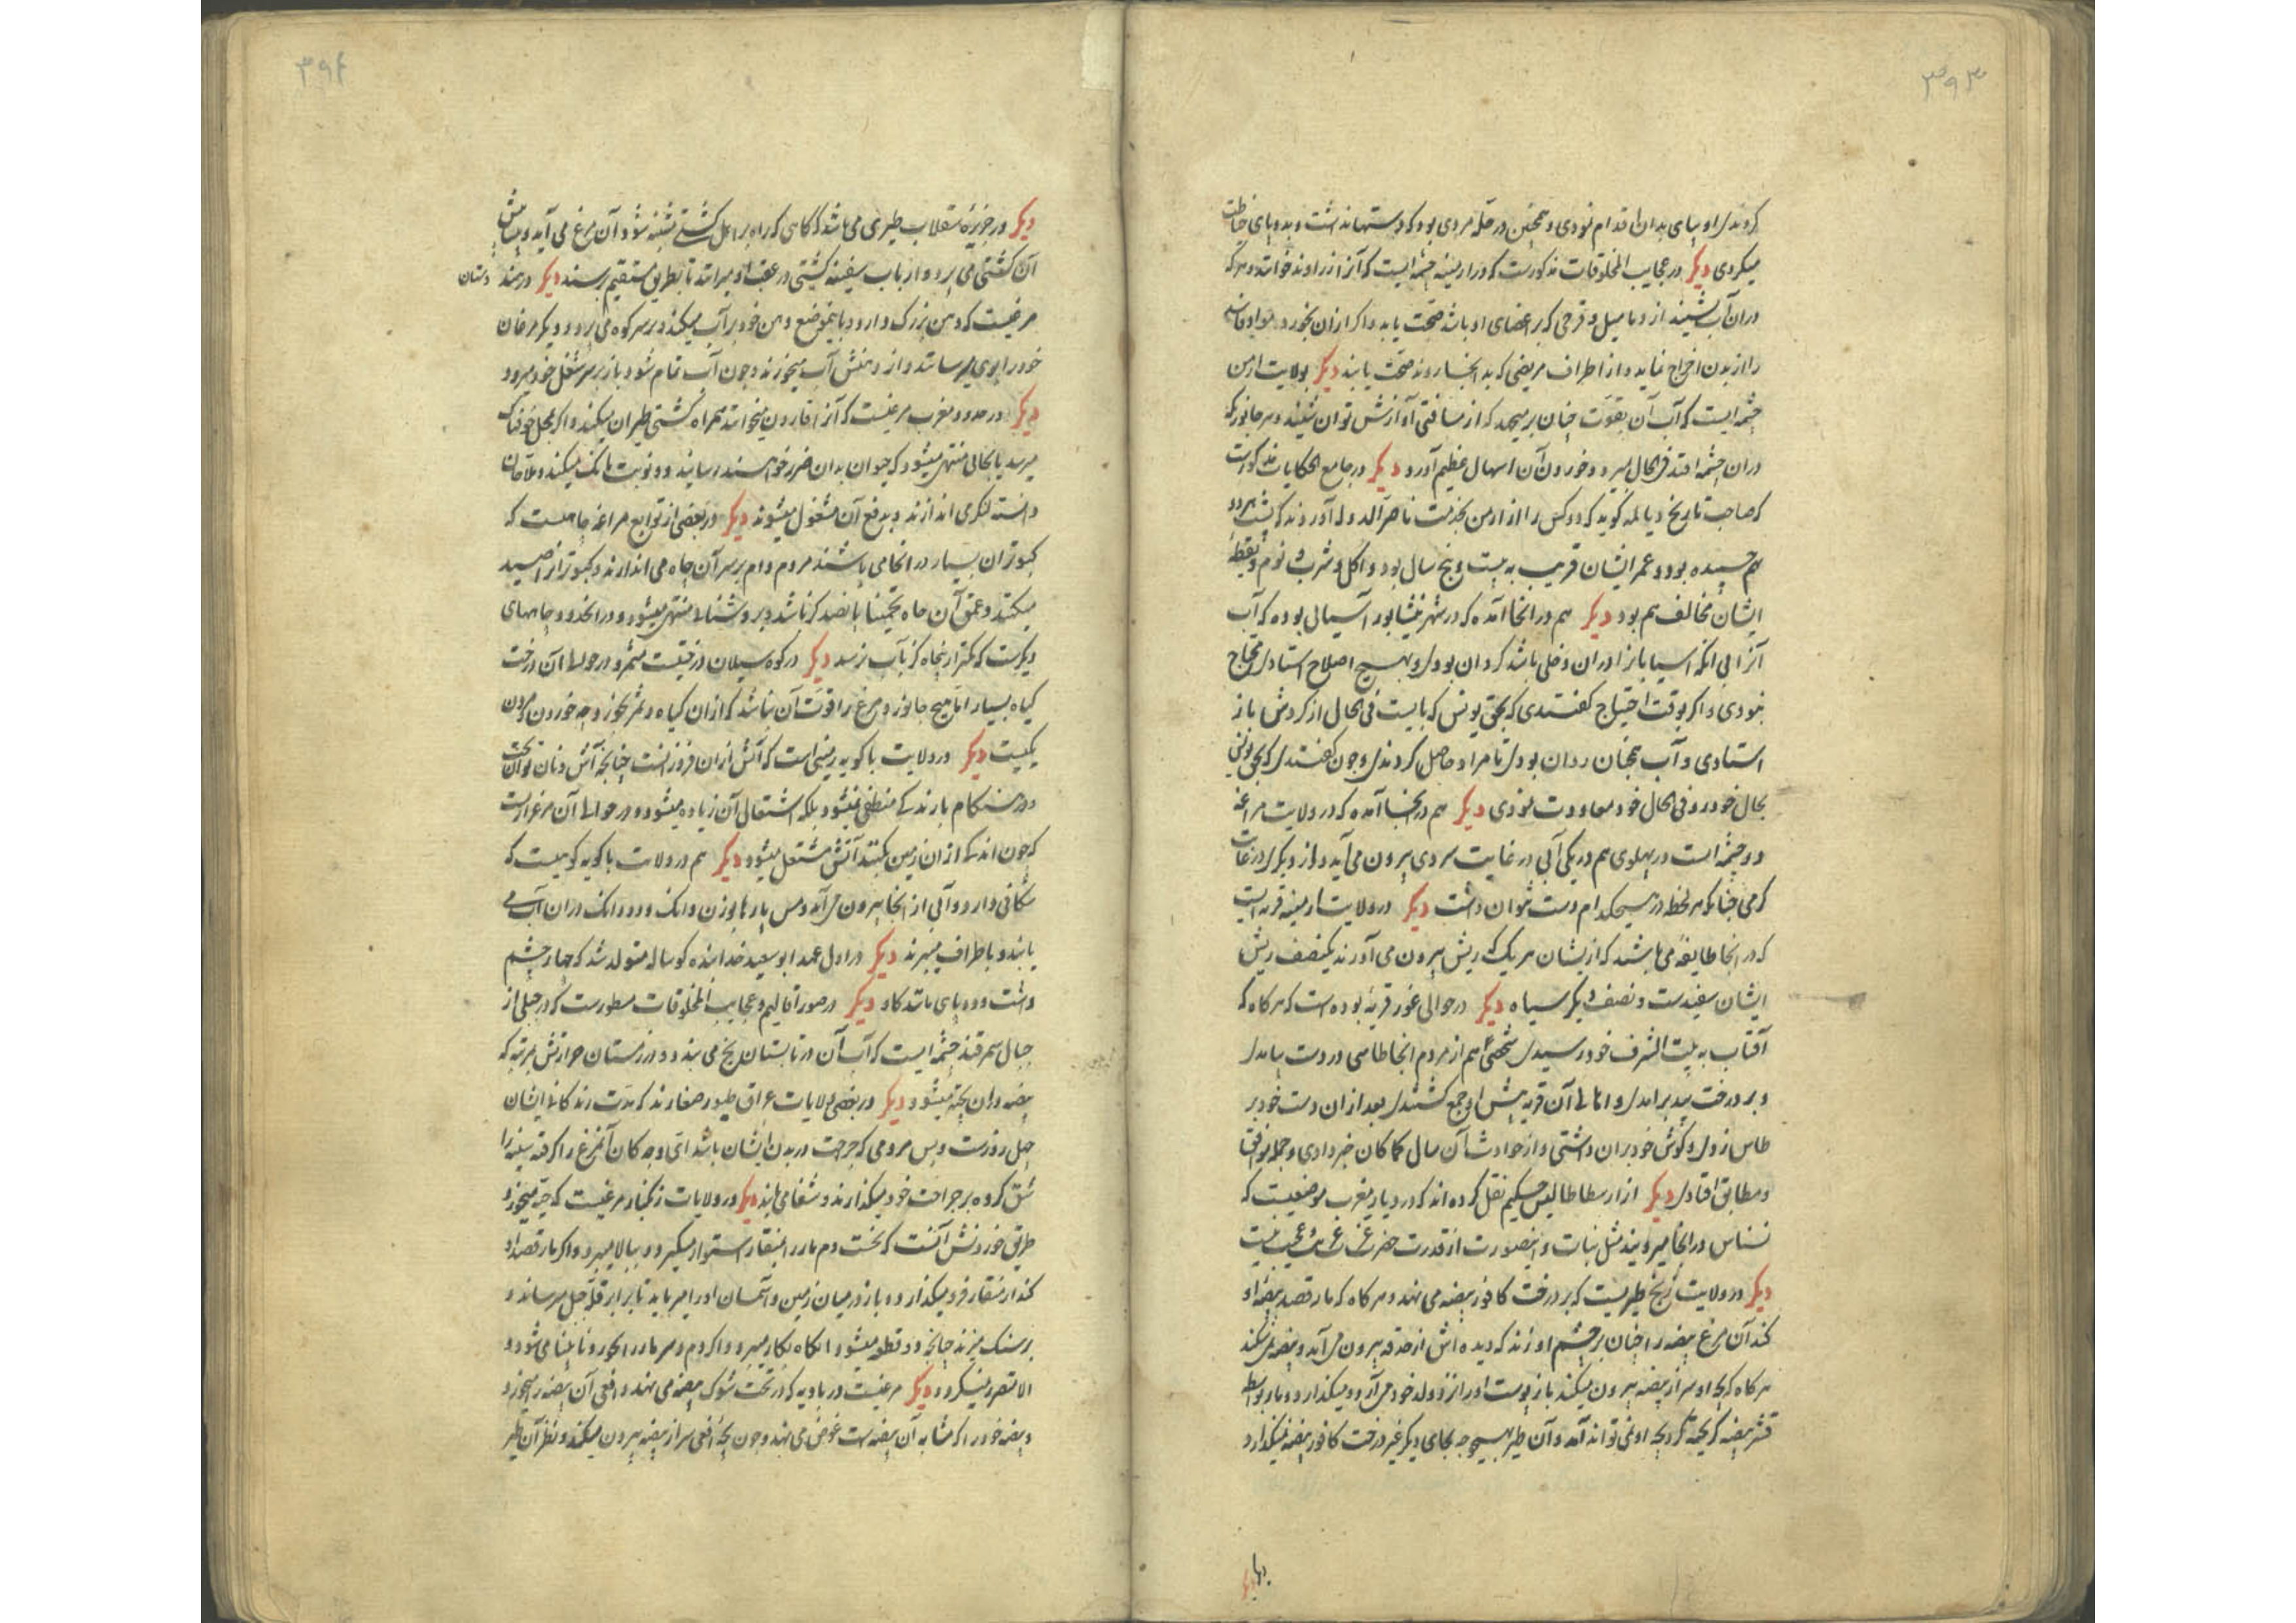 ۳۹۳
کردند او بپای بدان اقدام نمودی و همچنین در حله مردی بود که دستها نداشت و بدو پای خیاطت
میکردی دیگر در عجایب المخلوقات مذکورست که در ارمنیه چشمه ایست که آنرا زراوند خوانند و هر که
در آن آب نشیند از دمامیل و قرحی که بر اعضای او باشد صحت یابد و اگر از آن بخورد مواد فاسد
را از بدن اخراج نماید و از اطراف مریضی که بدانجا روند صحت یابند دیگر بولایت ارمن
چشمه ایست که آب آن بقوت چنان بر میجهد که از مسافتی آوازش توان شنید و هر جانور که
در آن چشمه افتد فی الحال میرد و خوردن آن اسهال عظیم آورد دیگر در جامع الحکایات مذکورست
که صاحب تاریخ دیالمه گوید که دو کس را از ارمن بخدمت ناصر الدوله آوردند که پشت هر دو
هم چسپیده بود و عمر ایشان قریب به بیست و پنج سال بود و اکل و شرب و نوم و یقظه
ایشان مخالف هم بود دیگر هم در آنجا آمده که در شهر نیشابور آسیائی بوده که آب
آنرا بی آنکه آسیابانرا در آن دخلی باشد گردان بودی و بهیچ اصلاح استاد محتاج
نبودی و اگر بوقت احتیاج گفتندی که بحق یونس که بایست فی الحال از گردش باز
استادی و آب همچنان روان بودی تا مراد حاصل کردندی و چون گفتندی که بحق یونس
بحال خود رو فی الحال خود معاودت نمودی دیگر هم در آنجا آمده که در ولایت مراغه
دو چشمه است در پهلوی هم در یکی آبی در غایت سردی بیرون می آید و از دیگری در غایت
گرمی چنانکه هر لحظه در هیچکدام دست نتوان داشت دیگر در ولایت ارمنیه قریه ایست
که در آنجا طایفه می باشند که از ایشان هر یک که ریش بیرون می آورند یکنصف ریش
ایشان سفیدست و نصف دیگر سیاه دیگر در حوالی غور قریه بوده است که هر گاه که
آفتاب به بیت الشرف خود رسیدی شخصی هم از مردم آنجا طاسی در دست بیامدی
و بر درخت بید برامدی و اهالی آن قریه پیش او جمع گشتندی بعد از آن دست خود بر
طاس زدی و گوش خود بران داشتی و از حوادث آن سال کماکان خبر دادی و جمله موافق
و مطابق افتادی دیگر از ارسطاطالیس حکیم نقل کرده اند که در دیار مغرب موضعیست که
نسناس در آنجا میرویند مثل نبات و اینصورت از قدرت حضرت عزت غریب و عجیب نیست
دیگر در ولایت زنج طیریست که بر درخت کافور بیضه می نهد و هر گاه که مار قصد بیضه او
کند آن مرغ بیضه را چنان بر چشم او زند که دیده اش از حدقه بیرون می آید و بیضه می شکند
هر گاه که بچه او سر از بیضه بیرون میکند باز پوست او را نزد ولد خود می آرد و میگذارد و مار بواسطه
قشر بیضه که ریخته گرد بچه او نمی تواند آمد و آن طیر بهیچوجه بجای دیگر غیر درخت کافور بیضه نمیگذارد
۳۹۴
دیگر در جزیره سقلاب طیری می باشد که گاهی که راه بر اهل کشتی مشتبه شود آن مرغ می آید و پیش پیش
آن کشتی می پرد و ارباب سفینه کشتی در عقب او میرانند تا بطریق مستقیم رسند دیگر در هندوستان
مرغیست که دهن بزرگ دارد در تابستان بموضع دهن خود پر آب میکند و بر سر کوه می پرد و دیگر مرغان
خود را بوی میرسانند و از دهنش آب میخورند و چون آب تمام شود باز بر سر شغل خود میرود
دیگر در حدود مغرب مرغیست که آنرا قارون میخوانند همراه کشتی طیران میکند و اگر بمحل خوفناک
میرسد یا بجائی منتهی میشود که حیوان بدان ضرر خواهند رسانید دو نوبت بانگ میکند و ملاحان
دانسته لنگر می اندازند و بدفع آن مشغول میشوند دیگر در بعضی از توابع مراغه چاهیست که
کبوتران بسیار در آنجا می باشند مردم دام بر سر آن چاه می اندازند و کبوتر از صید
میکنند و عمق آن چاه تخمینا پانصد گز باشد و بروشنائی منتهی میشود و در آنحدود چاههای
دیگرست که کمتر از پنجاه گز بآب نرسد دیگر در کوه سبلان درختیست مثمر و در حوالی آن درخت
گیاه بسیار اما هیچ جانور و مرغ را قوت آن نباشد که از آن گیاه و ثمر بخورد چه خوردن و مردن
یکیست دیگر در ولایت باکویه زمینی است که آتش از آن فروزانست چنانچه آش و نان توان پخت
و در هنگام بارندگی منطفی نمیشود بلکه اشتعالی آن زیاده میشود و در حوالی آن مرغزاریست
که چون اندکی از آن زمین بکنند آتش مشتعل میشود دیگر هم در ولایت باکویه کوهیست که
شکافی دارد و آبی از آنجا بیرون می آید و مس پارها بوزن دانگ و دو دانگ در آن آب می
یابند و باطراف میبرند دیگر در اول عهد ابو سعید خدابنده گوساله متولد شد که چهار چشم
داشت و دو پای مانند گاو دیگر در صور اقالیم و عجایب المخلوقات مسطورست که در جبلی از
جبال سمرقند چشمه ایست که آب آن در تابستان یخ می بندد و در زمستان حرارتش بمرتبه که
بیضه در آن پخته میشود دیگر در بعضی ولایات عراق طیور صغارند که مدت زندگانی ایشان
چهل روزست و بس مردمی که جراحت در بدن ایشان باشد اتی وجه کان آنمرغ را گرفته سینه را
شق کرده بر جراحت خود میگذارند و شفا می یابند دیگر در ولایات زنگبار مرغیست که حیه میخورد
طریق خوردنش آنست که نخست دم مار را بمنقار استوار میگیرد و ببالا میبرد و اگر مار قصد او
کند از منقار فرو میگذارد و باز در میان زمین و آسمان او را میرباید تا برابر قله جبل میرساند و
بر سنگ میزند چنانچه دو قطعه میشود آنگاه بکار میبرد و اگر دم و سر مار را بخورد نابینا می شود و
الا متضرر نمیگردد دیگر مرغیست در بادیه که در تحت شوک بیضه می نهد و افعی آن بیضه را میخورد
و بیضه خود را که مشابه آن بیضه است عوض می نهد و چون بچه افعی سر از بیضه بیرون میکند و نظر آن طیر